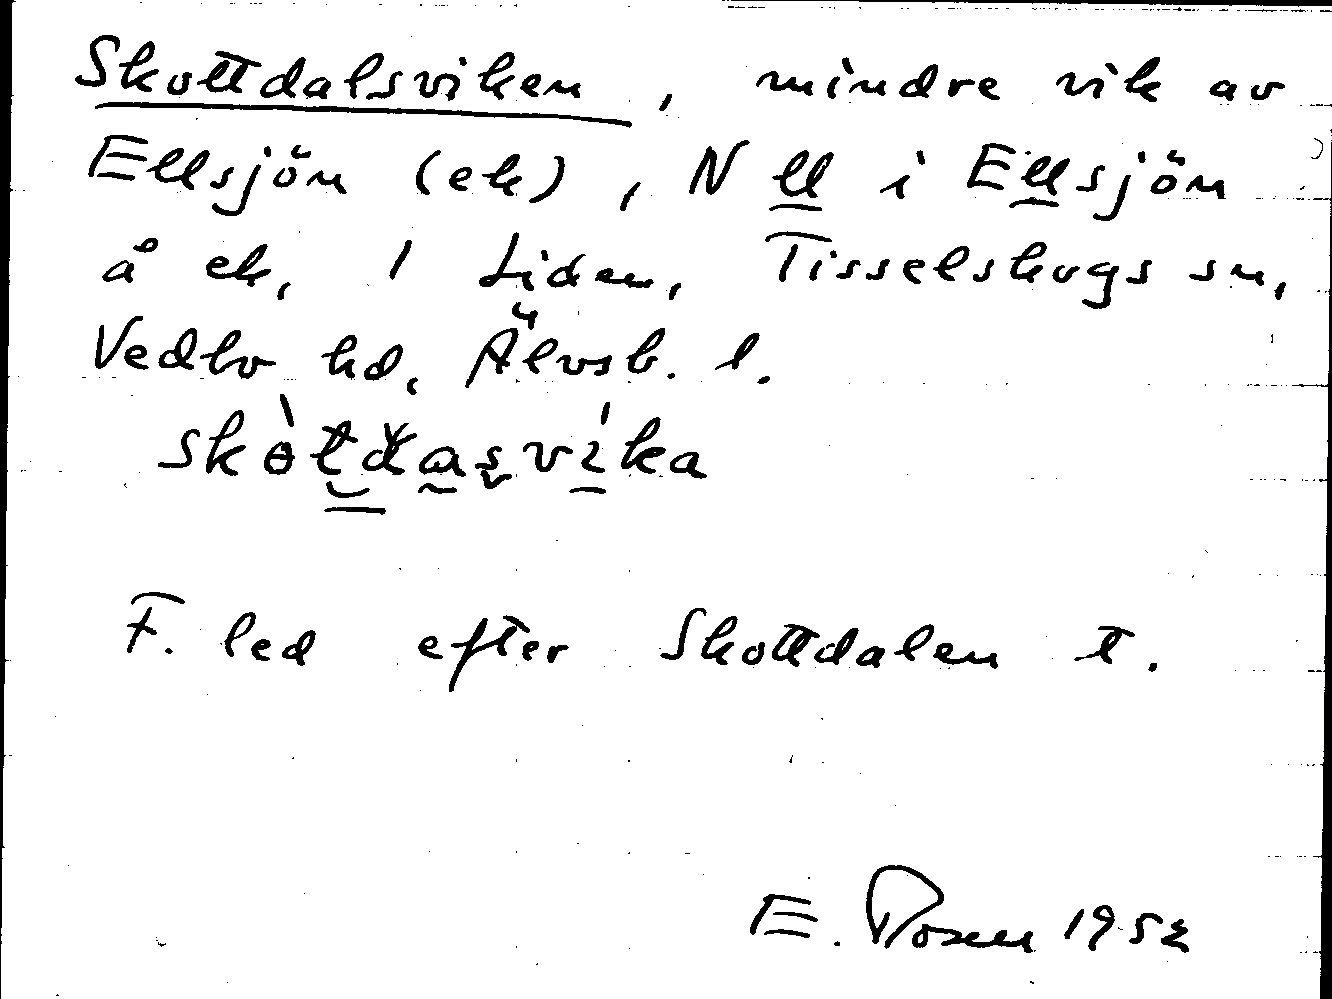 Skottdalsviken, mindre vik av
Ellsjön (ek), N ll i Ellsjön
å ek, 1 Liden, Tisselskogs sn,
Vedbo hd, Älvsb. l.
F. led efter Skottdalen t.
E. Rosen 1952